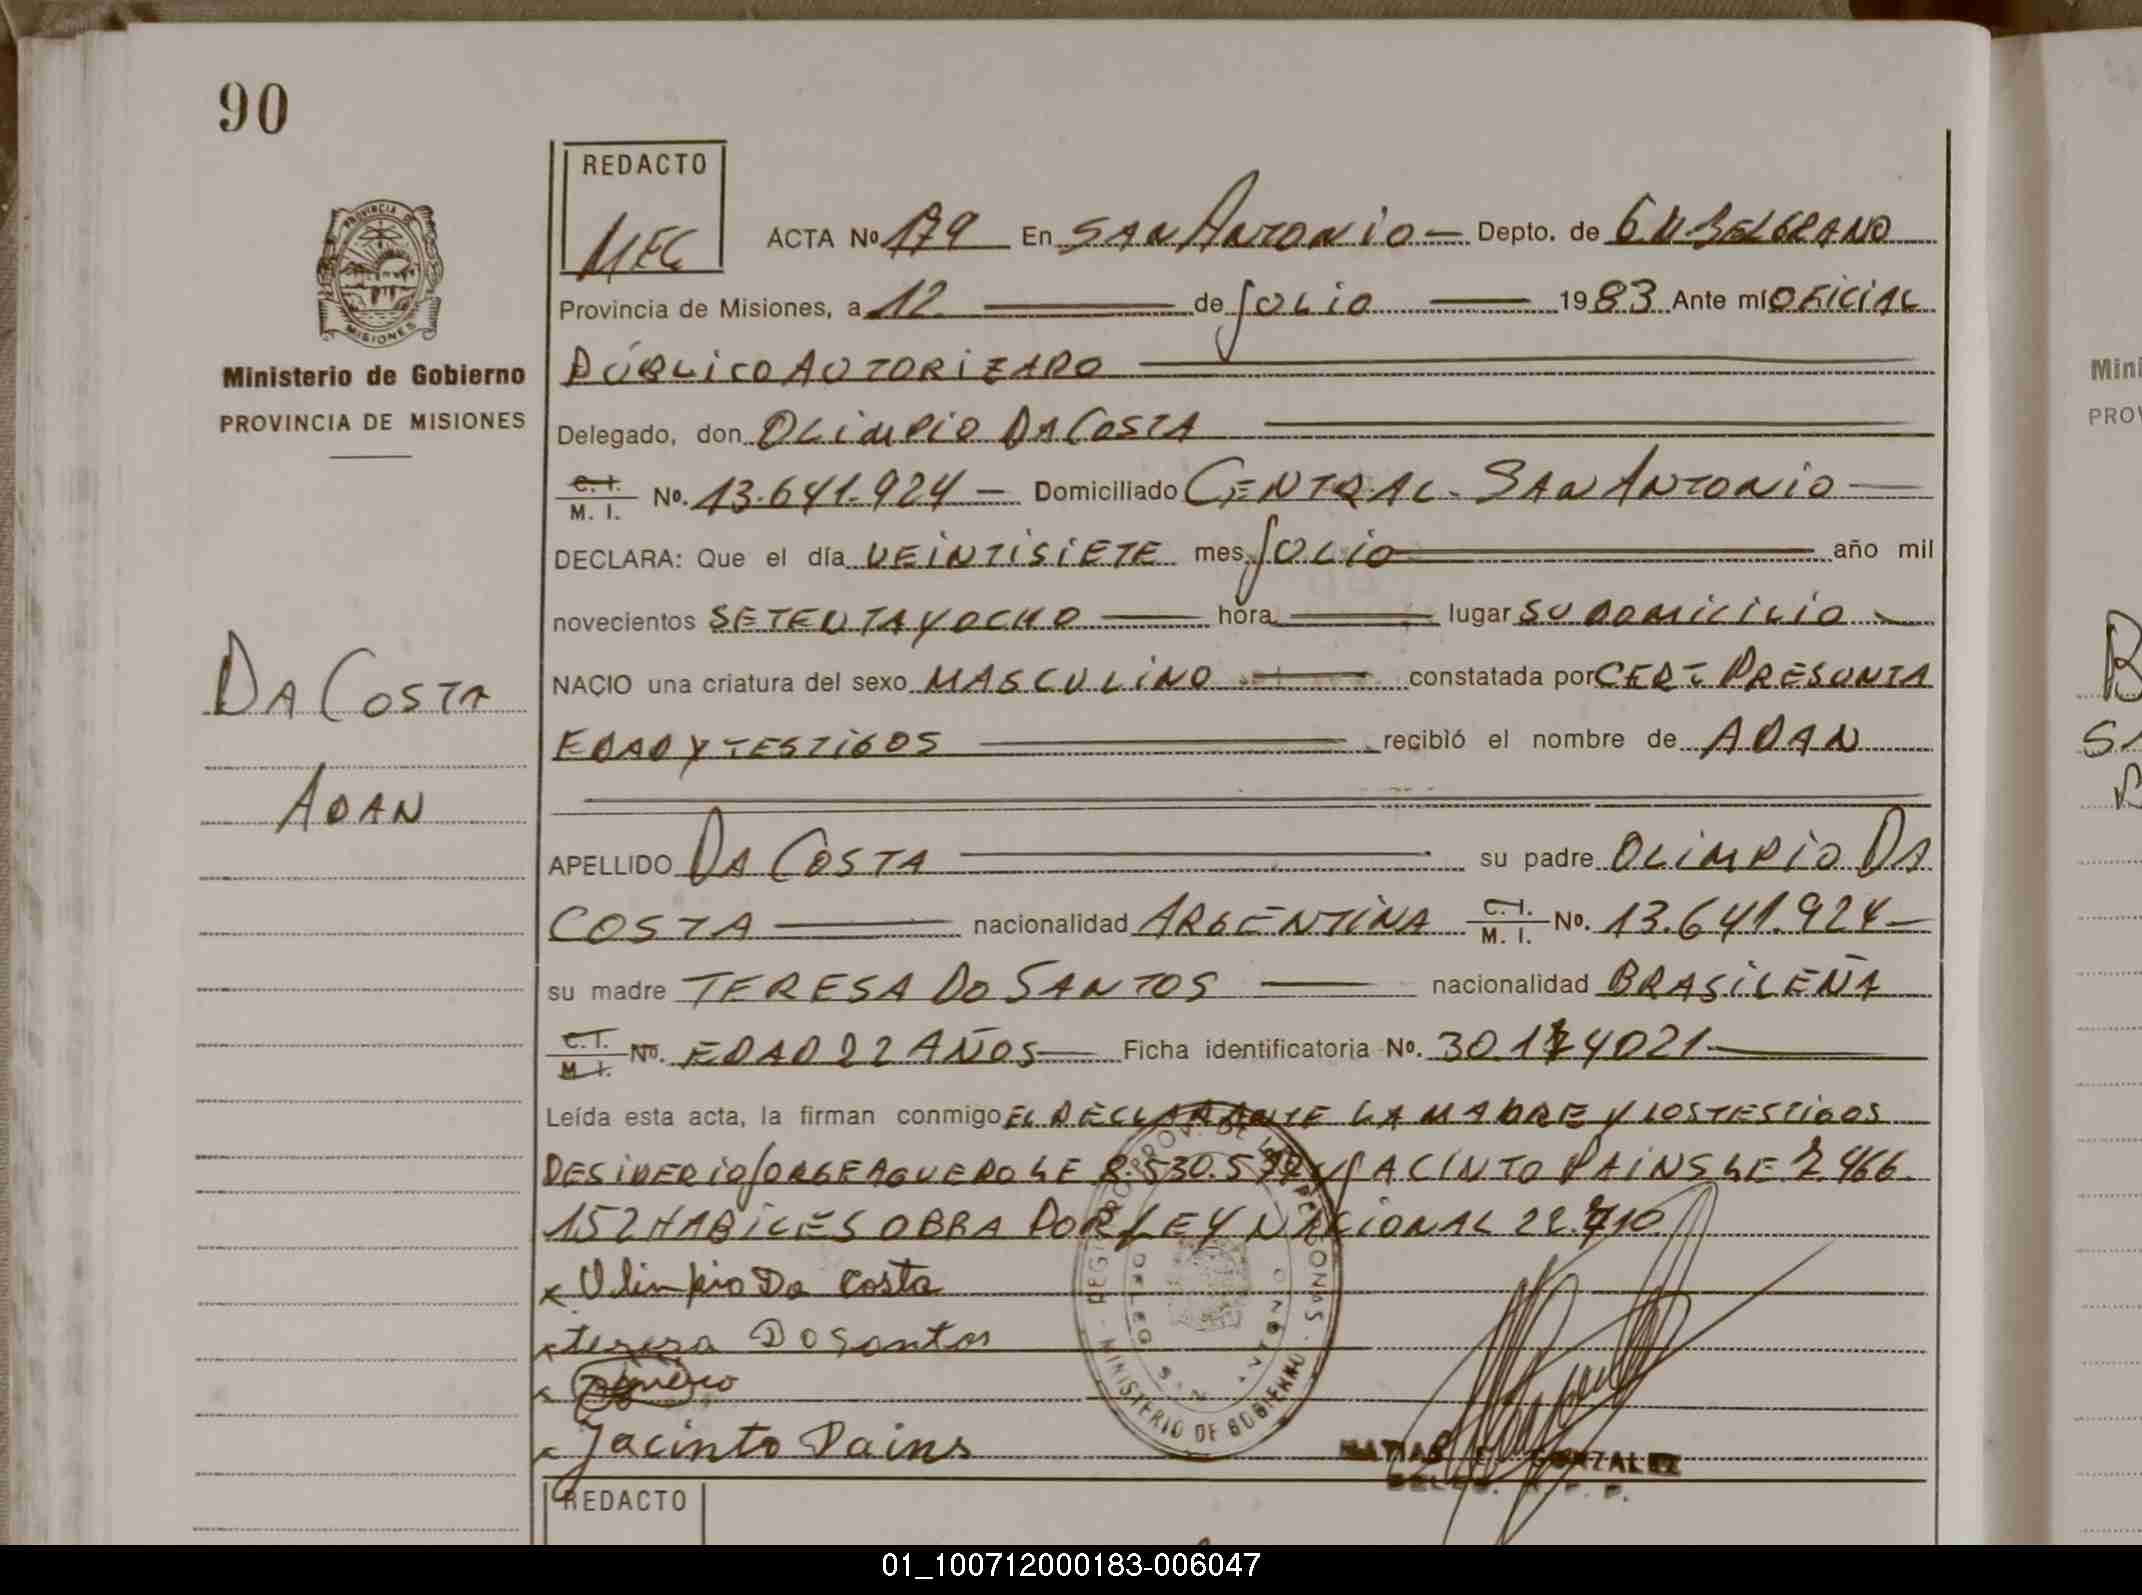 90
REDACTO
MEG
ACTA Nº 179 En SAN ANTONIO — Depto. de G M BELGRANO
PROVINCIA DE
MISIONES
Provincia de Misiones, a 12 de JULIO 1983 Ante mí OFICIAL
Ministerio de Gobierno
PÚBLICO AUTORIZADO
PROVINCIA DE MISIONES
Delegado, don OLIMPIO DA COSTA
C. I. / M. I. No. 13.641.924 — Domiciliado CENTRAL - SAN ANTONIO —
DECLARA: Que el día VEINTISIETE mes JULIO año mil
novecientos SETENTA Y OCHO hora lugar SU DOMICILIO
DA COSTA
NACIO una criatura del sexo MASCULINO constatada por CERT PRESUNTA
EDAD Y TESTIGOS recibió el nombre de ADAN
ADAN
APELLIDO DA COSTA su padre OLIMPIO DA
COSTA nacionalidad ARGENTINA C. I. / M. I. No. 13.641.924 —
su madre TERESA DO SANTOS — nacionalidad BRASILEÑA
C. I. / M. I. No. EDAD 22 AÑOS — Ficha identificatoria No. 30.174021 —
Leída esta acta, la firman conmigo EL DECLARANTE LA MADRE Y LOS TESTIGOS
DESIDERIO JORGE AGUERO LE 8.530.5 Y JACINTO PAINS LE 7.466.
152 HABILES OBRA POR LEY NACIONAL 22.710
x Olimpio Da Costa
x teresa Do Santos
x Aguero
x Jacinto Pains
REGISTRO PROV. DE LAS PERSONAS
MINISTERIO DE GOBIERNO
MATIAS E. GONZALEZ
DELEG. R. P. P.
REDACTO
Mini
PROV
01_100712000183-006047